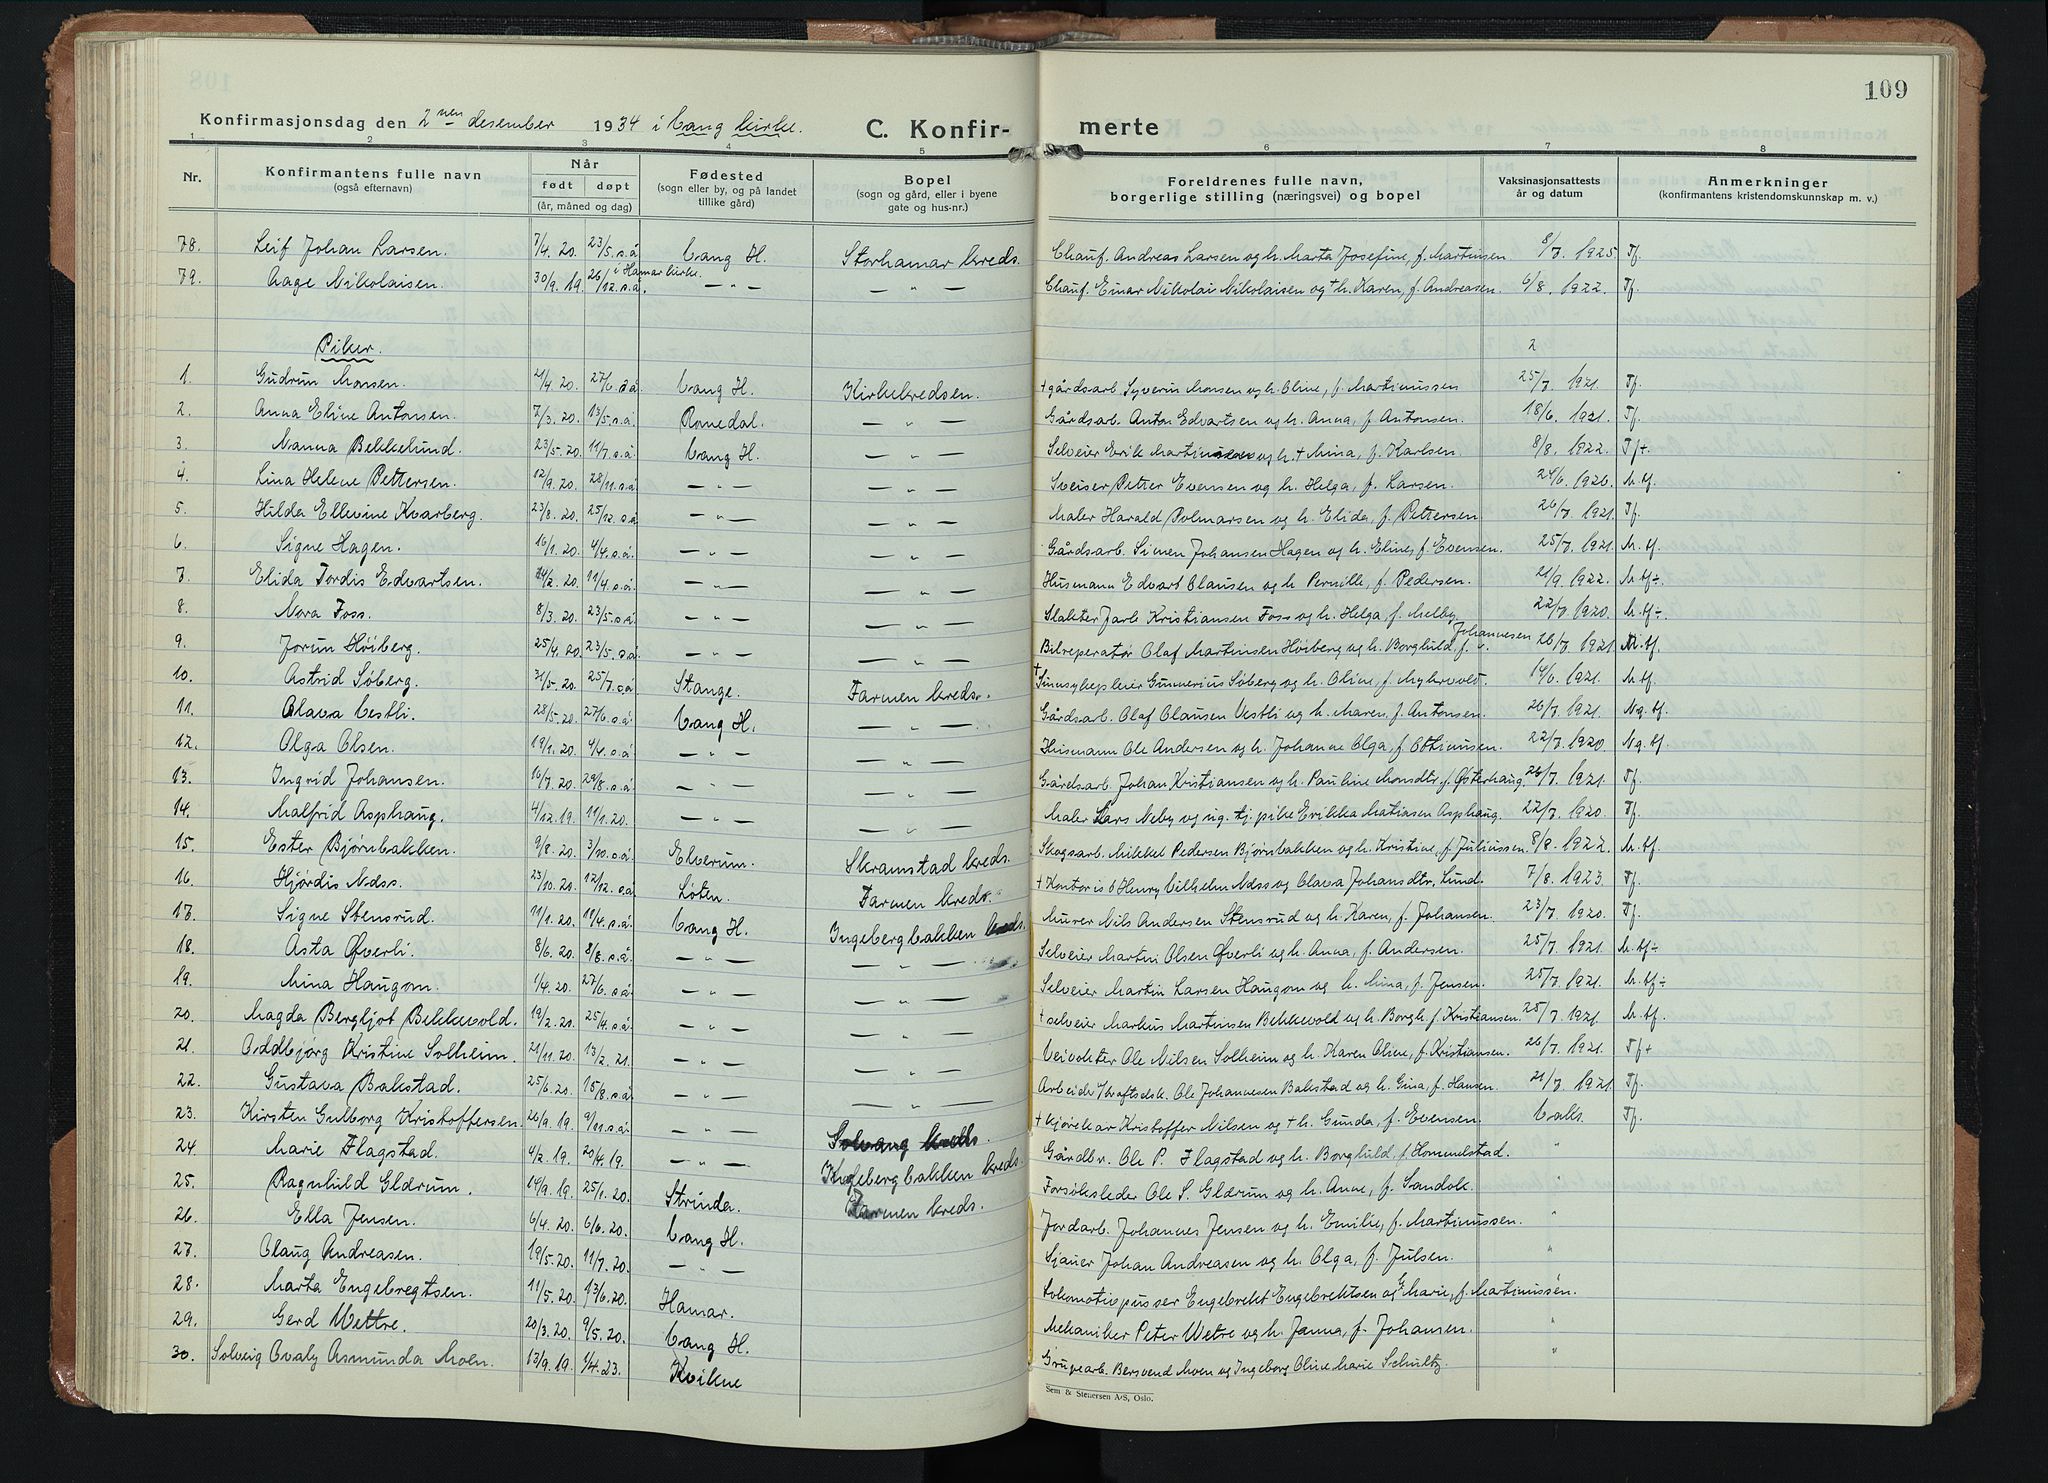 109
Konfirmasjonsdag den 2nen desember 1934 i Vang kirke.
C. Konfir- merte
1 2 3 4 5 6 7 8
Nr. Konfirmantens fulle navn (også efternavn) Når født døpt (år, måned og dag) Fødested (sogn eller by, og på landet tillike gård) Bopel (sogn og gård, eller i byene gate og hus-nr.) Foreldrenes fulle navn, borgerlige stilling (næringsvei) og bopel Vaksinasjonsattests år og datum Anmerkninger (konfirmantens kristendomskunnskap m. v.)
78. Leif Johan Larsen. 7/4. 20. 23/5. s.å. Vang H. Storhamar kreds. Chauf. Andreas Larsen og h. Marta Josefine, f. Martinsen 8/7. 1925. Tf.
79. Aage Nikolaisen. 30/9. 19. 26/12. s.å. i Hamar kirke. — " — — " — Chauf. Einar Nikolai Nikolaisen og + h. Karen, f. Andreasen. 6/8. 1922. Tf.
Piker. 2
1. Gudrun Monsen. 2/4. 20. 27/6. s.å. Vang H. Kirkekredsen. + gårdsarb. Syverin Monsen og h. Oline, f. Martinussen 25/7. 1921. Tf.
2. Anna Eline Antonsen. 7/3. 20. 13/5. s.å. Romedal. — " — Gårdsarb. Anton Edvartsen og h. Anna, f. Antonsen. 18/6. 1921. Tf.
3. Nanna Bekkelund. 23/5. 20. 11/7. s.å. Vang H. — " — Selveier Erik Martinsen og h. + Mina, f. Karlsen. 8/8. 1922. Tf+.
4. Lina Helene Pettersen. 12/9. 20. 28/11. s.å. — " — — " — Sveiser Petter Evensen og h. Helga, f. Larsen. 24/6. 1926. M. tf.
5. Hilda Ellevine Kvarberg. 23/8. 20. 25/12. s.å. — " — — " — Maler Harald Polmarsen og h. Elida, f. Pettersen 26/7. 1921. Tf.
6. Signe Hagen. 16/1. 20. 4/4. s.å. — " — — " — Gårdsarb. Simen Johansen Hagen og h. Eline, f. Evensen. 25/7. 1921. M. tf.
7. Elida Tordis Edvartsen. 14/2. 20. 11/4. s.å. — " — — " — Husmann Edvart Olausen og h. Pernille, f. Pedersen. 21/9. 1922. M. tf÷.
8. Nora Foss. 8/3. 20. 23/5. s.å. — " — — " — Slakter Jarl Kristiansen Foss og h. Helga, f. Melby. 22/7. 1920. M. tf÷
9. Jorun Høiberg. 25/4. 20. 23/5. s.å. — " — — " — Bilreperatør Olaf Martinsen Høiberg og h. Borghild, f. Johannesen 26/7. 1921. M. tf.
10. Astrid Søberg. 31/5. 20. 25/7. s.å. Stange. Farmen kreds. + Sinnsykepleier Gunnerius Søberg og h. Oline, f. Myhrvold. 14/6. 1921. M. tf.
11. Olava Vestli. 28/5. 20. 27/6. s.å. Vang H. — " — Gårdsarb. Olaf Olausen Vestli og h. Maren, f. Antonsen. 26/7. 1921. Ng. tf.
12. Olga Olsen. 19/1. 20. 4/4. s.å. — " — — " — Husmann Ole Andersen og h. Johanne Olga, f. Ottinusen. 22/7. 1920. Ng. tf.
13. Ingrid Johansen. 16/7. 20. 29/8. s.å. — " — — " — Gårdsarb. Johan Kristiansen og h. Pauline Monsdtr, f. Østerhaug. 26/7. 1921. Tf.
14. Malfrid Asphaug. 4/12. 19. 11/1. 20. — " — — " — Maler Lars Neby og ug. tj. pike Erikka Matiasen Asphaug. 22/7. 1920. Tf.
15. Ester Bjørnbakken. 9/8. 20. 3/10. s.å. Elverum. Skramstad kreds. Skogsarb. Mikkel Pedersen Bjørnbakken og h. Kristine, f. Juliussen. 8/8. 1922. M. tf.
16. Hjørdis Ndss. 23/10. 20. 12/12. s.å. Løten. Farmen kreds. + Kontorist Henry Vilhelm Ndss og Olava Johansdtr. Lund. 7/8. 1923. Tf.
17. Signe Stensrud. 11/1. 20. 11/4. s.å. Vang H. Ingebergbakken kreds. Murer Nils Andersen Stensrud og h. Karen, f. Johansen. 23/7. 1920. Tf.
18. Asta Øverli. 8/6. 20. 8/8. s.å. — " — — " — Selveier Martin Olsen Øverli og h. Anna, f. Andersen. 25/7. 1921. M. tf÷
19. Mina Haugom. 1/4. 20. 27/6. s.å. — " — — " — Selveier Martin Larsen Haugom og h. Mina, f. Jensen. 25/7. 1921. M. tf÷
20. Magda Bergljot Bekkevold. 19/2. 20. 25/4. s.å. — " — — " — + selveier Markus Martinsen Bekkevold og h. Borgh. f. Kristiansen. 25/7. 1921. M. tf.
21. Oddbjørg Kristine Solheim. 21/11. 20. 13/2. 21. — " — — " — Veivokter Ole Nilsen Solheim og h. Karen Oline, f. Kristiansen. 26/7. 1921. Tf+
22. Gustava Bakstad. 25/6. 20. 15/8. s.å. — " — — " — Arbeider Kraftselsk. Ole Johannesen Bakstad og h. Gina, f. Hansen. 21/7. 1921. Tf.
23. Kirsten Gulborg Kristoffersen. 26/9. 19. 9/11. s.å. — " — Solvang kreds. + kjørekar Kristoffer Nilsen og + h. Gunda, f. Evensen. Vaks. Tf.
24. Marie Flagstad. 4/2. 19. 20/4. 19. — " — Ingebergbakken kreds. Gårdbr. Ole P. Flagstad og h. Borghild, f. Hommelstad. "
25. Ragnhild Glærum. 14/9. 19. 25/1. 20. Strinda. Farmen kreds. Forsøksleder Ole S. Glærum og h. Anne, f. Sandok. "
26. Ella Jensen. 6/4. 20. 6/6. 20. Vang H. Jordarb. Johannes Jensen og h. Emilie, f. Martinussen. "
27. Olaug Andreasen. 19/5. 20. 11/7. 20. — " — Sjauer Johan Andreasen og h. Olga, f. Julsen. "
28. Marta Engebregtsen. 11/5. 20. 13/6. 20. Hamar. Lokomotivpusser Engebrekt Engebrektsen og G. Marie, f. Martinussen.
29. Gerd Wettre. 20/3. 20. 9/5. 20. Vang H. Mekaniker Peter Wetre og h. Janna, f. Johansen. "
30. Solveig Ovaly Asmunda Moen. 13/9. 19. 1/4. 23. Kvikne Grupearb. Bersvend Moen og Ingeborg Oline Marie Schultz. "
Sem & Stenersen A/S, Oslo.